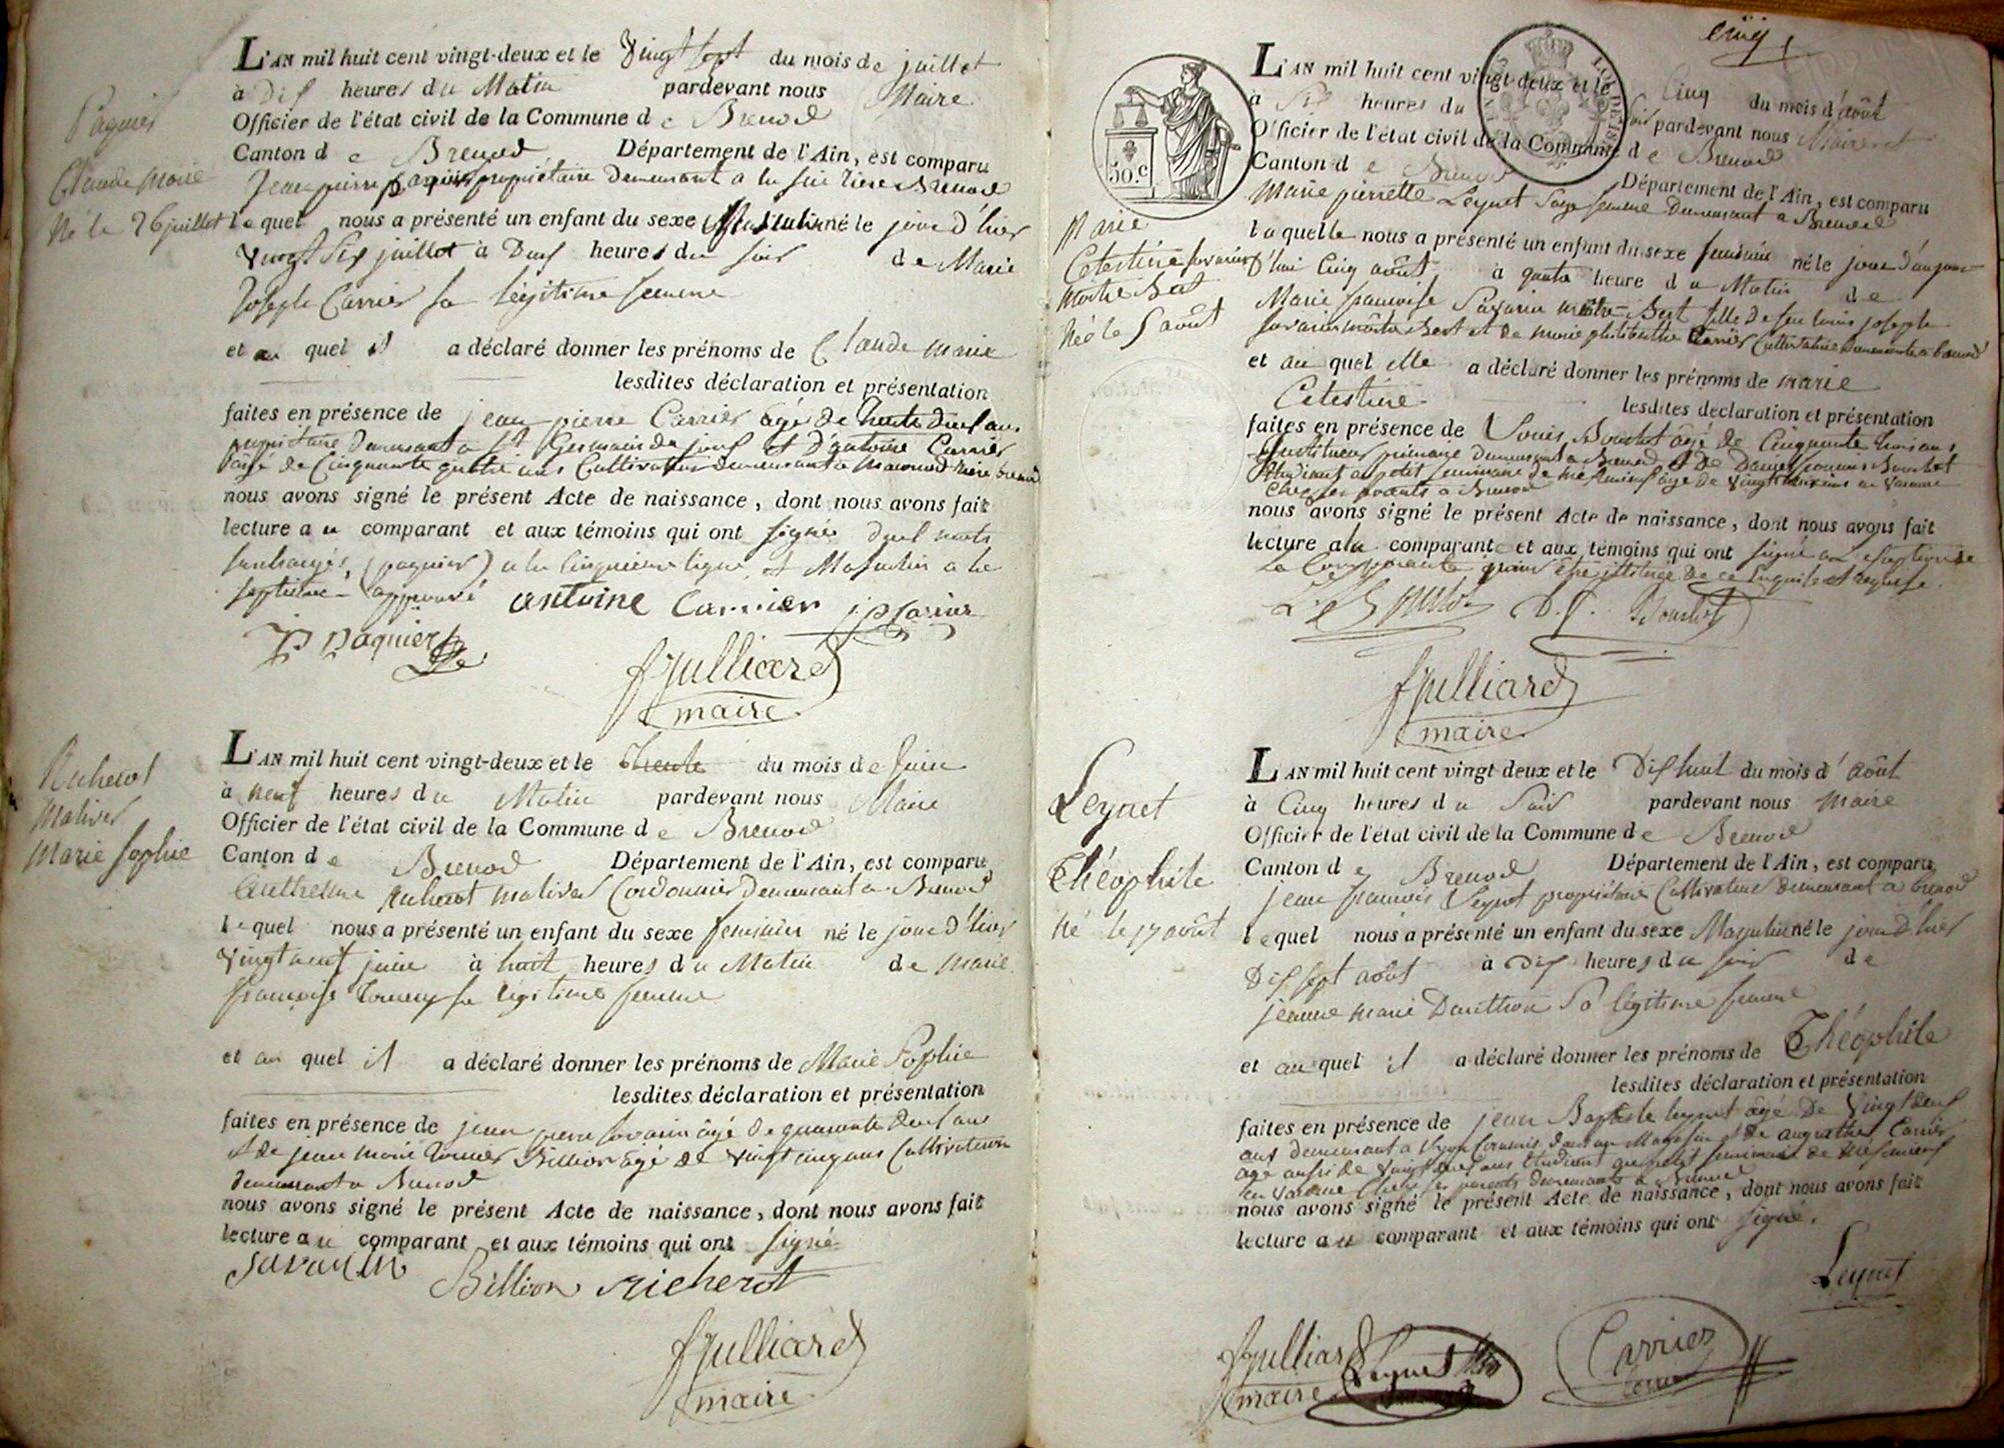 Paquier
Claude Marie
Né le 26 juillet
L'AN mil huit cent vingt-deux et le Vingt Sept du mois de juillet
à Dix heures du Matin pardevant nous Maire
Officier de l'état civil de la Commune de Brenod
Canton de Brenod Département de l'Ain, est comparu
Jean pierre paquier propriétaire demeurant a la rière Brenod
lequel nous a présenté un enfant du sexe Masculin né le jour d'hier
Vingt Six juillet à Deux heures du soir de Marie
Joseph Carrier sa légitime femme
et au quel il a déclaré donner les prénoms de Claude marie
lesdites déclaration et présentation
faites en présence de jean pierre Carrier agé de trente deux ans
propriétaire demeurant a St Germain de joux et D'antoine Carrier
agé de Cinquante quatre ans Cultivateur demeurant a rière brenod
nous avons signé le présent Acte de naissance, dont nous avons fait
lecture au comparant et aux témoins qui ont signé deux mots
surchargés (paquier) a la Cinquieme ligne et Masculin a la
septieme approuvé antoine Carrier jp Carrier
JP paquier
Julliard
maire
Richerot
Maliver
Marie Sophie
L'AN mil huit cent vingt-deux et le Trente du mois de juin
à neuf heures du Matin pardevant nous Maire
Officier de l'état civil de la Commune de Brenod
Canton de Brenod Département de l'Ain, est comparu
Anthelme Richerot maliver Cordonnier demeurant a Brenod
lequel nous a présenté un enfant du sexe feminin né le jour d'hier
Vingt neuf juin à huit heures du Matin de marie
françoise sa légitime femme
et au quel il a déclaré donner les prénoms de Marie Sophie
lesdites déclaration et présentation
faites en présence de jean pierre Savarin âgé de quarante deux ans
et de jean marie Billion âgé de vingt cinq ans Cultivateurs
demeurant a Brenod
nous avons signé le présent Acte de naissance, dont nous avons fait
lecture au comparant et aux témoins qui ont signé
Savarin
Billion richerot
Julliard
maire
cinq
50.C
LOI DE 18
Marie
Celestine Savarin
Maitre Bert
Née le 5 août
L'AN mil huit cent vingt-deux et le Cinq du mois d'août
à Six heures du soir pardevant nous Maire
Officier de l'état civil de la Commune de Brenod
Canton de Brenod Département de l'Ain, est comparu
Marie pierrette Leynet Sage femme demeurant a Brenod
laquelle nous a présenté un enfant du sexe feminin né le jour d'aujour
d'hui Cinq août à quatre heure du Matin de
Marie françoise Savarin maitre Bert fille de feu louis joseph
Savarin maitre Bert et de marie Carrier Cultivatrice demeurante a brenod
et au quel elle a déclaré donner les prénoms de marie
Celestine lesdites déclaration et présentation
faites en présence de Louis Bouchet agé de Cinquante trois ans
Instituteur primaire demeurant a Brenod et de françois Bouchet
Etudiant au petit seminaire de agé de Vingt ans en Vacance
Chez ses parents a Brenod
nous avons signé le présent Acte de naissance, dont nous avons fait
lecture a la comparante et aux témoins qui ont signé a l'exception de
la Comparante pour être de ce Enquise et requise.
D. f. Bouchet
Julliard
maire
Leynet
Théophile
Né le 17 août
L'AN mil huit cent vingt deux et le Dix huit du mois d'août
à Cinq heures du soir pardevant nous maire
Officier de l'état civil de la Commune de Brenod
Canton de Brenod Département de l'Ain, est comparu
jean françois Leynet propriétaire Cultivateur demeurant a brenod
lequel nous a présenté un enfant du sexe Masculin né le jour d'hier
Dix sept août à Dix heures du soir de
jeanne marie sa légitime femme
et au quel il a déclaré donner les prénoms de Théophile
lesdites déclaration et présentation
faites en présence de jean Baptiste leynet âgé de Vingt deux
ans demeurant a Lyon Commis dans un Magasin et de Carrier
agé aussi de Vingt deux ans Etudiant au petit seminaire de
en Vacance Chez ses parents demeurants a Brenod
nous avons signé le présent Acte de naissance, dont nous avons fait
lecture au comparant et aux témoins qui ont signé.
Leynet
Julliard
maire
Leynet
Carrier